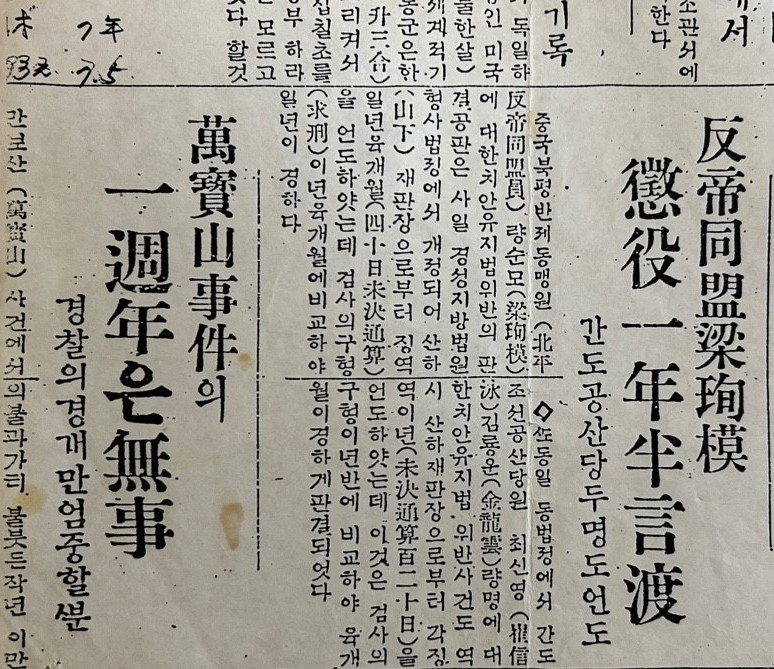 에서
소관서에
한다
기록
독일하
인 미국
둘한살)
세계적기
동군은한
리켜서
모르고
다 할것
7年
7.5
反帝同盟梁珣模
懲役一年半言渡
간도공산당두명도언도
중국북평반제동맹원 (北平
反帝同盟員) 량순모(梁珣模)
에 대한치안유지법위반의 판
결공판은 사일 경성지방법원
형사법정에서 개정되어 산하
(山下) 재판장으로부터 징역
일년육개월(四十日未決通算)
을 언도하얏는데 검사의구형
(求刑)이년육개월에비교하야
일년이 경하다
◇ᄯᅩ동일 동법정에서 간도
조선공산당원 최신영 (崔信
泳)김룡운(金龍雲)량명에 대
한치안유지법 위반사건도 역
시 산하재판장으로부터 각징
역이년(未決通算百二十日)을
언도하얏는데 이것은 검사의
구형이년반에 비교하야 육개
월이경하게판결되엇다
萬寶山事件의
一週年은無事
경찰의경개만엄중할ᄲᅮᆫ
만보산 (萬寶山) 사건에서
의불과가티 불붓든작년 이만